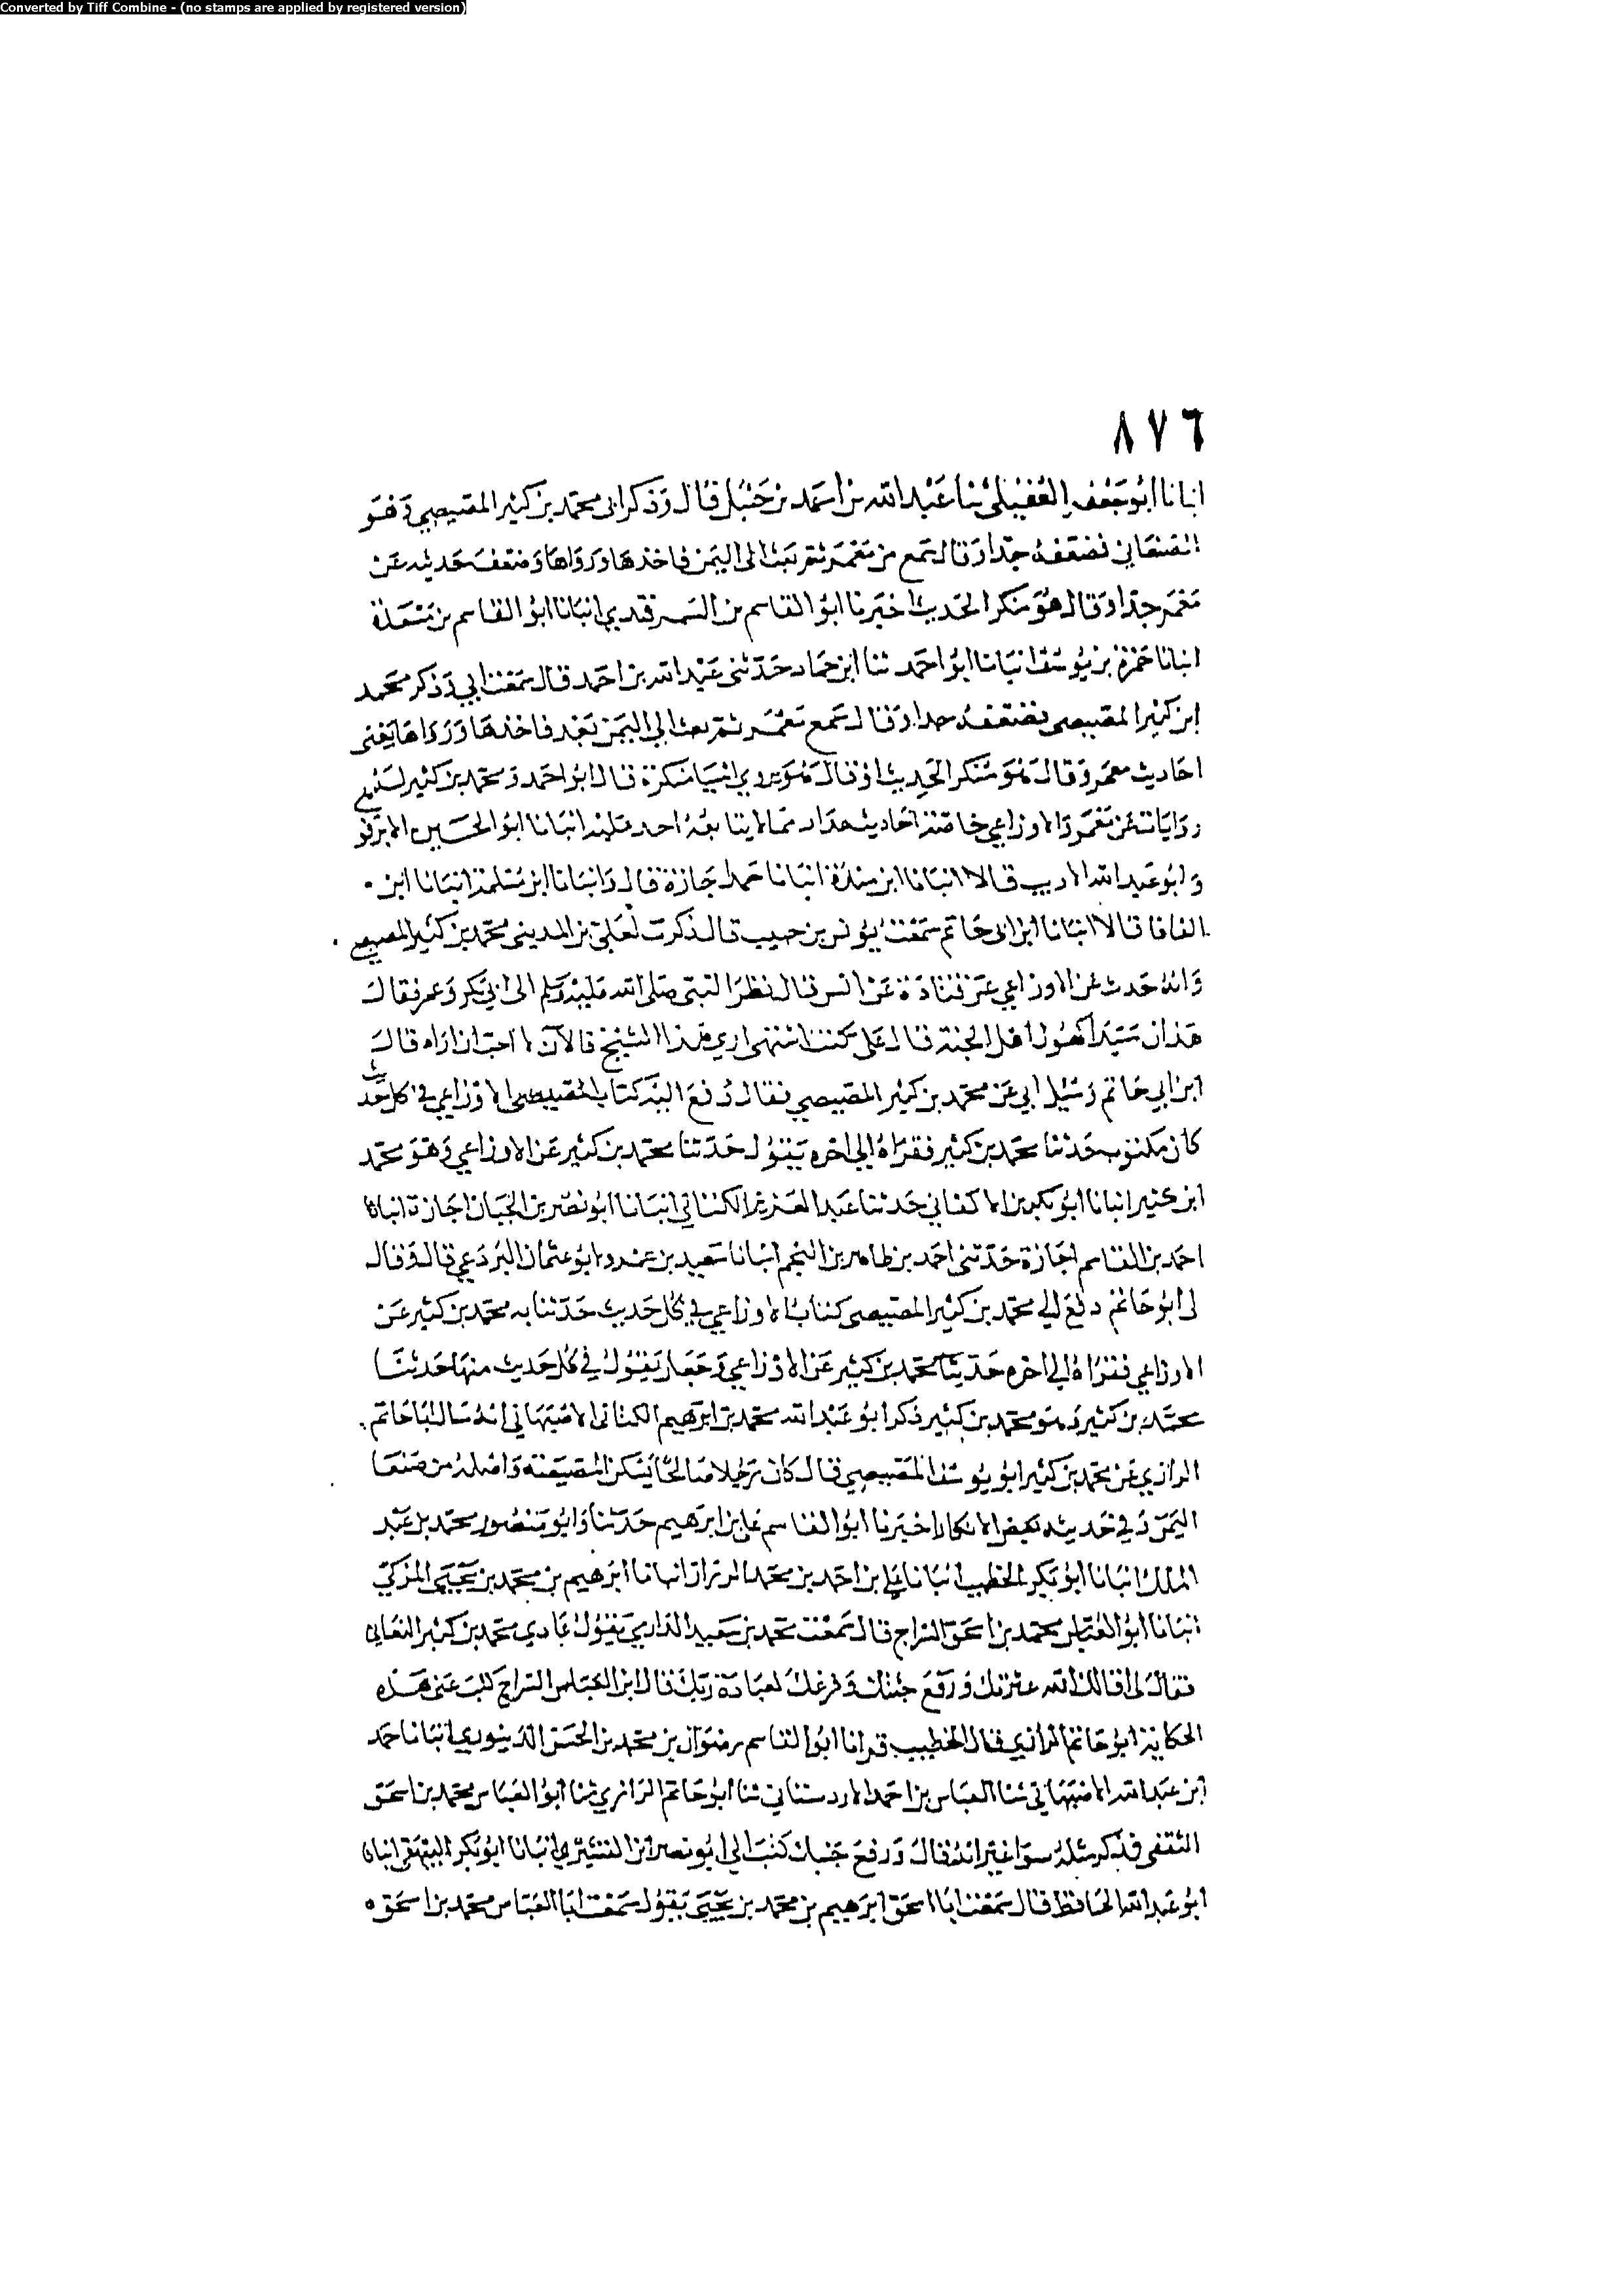 Converted by Tiff Combine - (no stamps are applied by registered version)
٨٧٦
انبانا ابو جعفر العقيلي ثنا عبد الله بن احمد بن حنبل قال وذكر ابى محمد بن كثير المصيصي وهو
الصنعاني فضعفه جدا وقال سمع من معمر ثم بعث الى اليمن فاخذها ورواها وضعف حديثه عن
معمر جدا وقال هو منكر الحديث اخبرنا ابو القاسم بن السمرقندي انبانا ابو القاسم بن مسعدة
انبانا حمزة بن يوسف انبانا ابو احمد ثنا ابن حماد حدثني عبد الله بن احمد قال سمعت ابي وذكر محمد
ابن كثير المصيصي فضعفه جدا وقال سمع معمر ثم بعث الى اليمن بعد فاخذها ورواها يعني
احاديث معمر وقال هو منكر الحديث او قال هو يروي اشيا منكرة قال ابو احمد ومحمد بن كثير له
روايات عن معمر والاوزاعي خاصة احاديث عداد مما لا يتابعه احد عليه انبانا ابو الحسين الابرقو
وابو عبد الله الاديب قالا انبانا ابن مندة انبانا حمد اجازة قال وانبانا ابن سلمة انبانا ابن
الفافا قالا انبانا ابن ابى حاتم سمعت يونس بن حبيب قال ذكرت لعلي بن المديني محمد بن كثير المصيصي
وانه حدث عن الاوزاعي عن قتادة عن انس قال نظر النبي صلى الله عليه وسلم الى ابي بكر وعمر فقال
هذان سيدا كهول اهل الجنة قال علي كنت اشتهي اري هذا الشيخ فالآن لا احب ان اراه قال
ابن ابي حاتم وسئل ابي عن محمد بن كثير المصيصي فقال دفع اليه كتاب المصيصي الاوزاعي في كل حديث
كان مكتوب حدثنا محمد بن كثير فقراه الى اخره يقول حدثنا محمد بن كثير عن الاوزاعي وهو محمد
ابن كثير انبانا ابو بكر بن الاكفاني حدثنا عبد العزيز الكتاني انبانا ابو نصر بن الجبان اجازة انبانا
احمد بن القاسم اجازة حدثني احمد بن طاهر بن النجم انبانا سعيد بن عمرو ابو عثمان البردعي قال وقال
لى ابو حاتم دفع الي محمد بن كثير المصيصي كتاب الاوزاعي في كل حديث حدثنا به محمد بن كثير عن
الاوزاعي فقراه الى اخره حدثنا محمد بن كثير عن الاوزاعي وجعل يقول في كل حديث منها حدثنا
محمد بن كثير وهو محمد بن كثير ذكر ابو عبد الله محمد بن ابرهيم الكتاني الاصبهاني انه سال ابا حاتم
الرازي عن محمد بن كثير ابو يوسف المصيصي قال كان رجلا صالحا يسكن المصيصة واصله من صنعا
اليمن وفي حديثه بعض الانكار اخبرنا ابو القاسم علي بن ابرهيم حدثنا وابو منصور محمد بن عبد
الملك انبانا ابو بكر الخطيب انبانا علي بن احمد بن محمد الرزاز انبانا ابرهيم بن محمد بن يحيى المزكي
انبانا ابو العباس محمد بن اسحق السراج قال سمعت محمد بن سعيد الداري يقول عادي محمد بن كثير الصنعاني
فقال لى اقالك الله عثرتك ورفع جنتك وفرغك لعبادة ربك قال ابن العباس السراج كتب عني هذه
الحكاية ابو حاتم الرازي قال الخطيب قرانا ابو القاسم رضوان بن محمد بن الحسن الدينوري انبانا حمد
ابن عبد الله الاصبهاني ثنا العباس بن احمد الاردستاني ثنا ابو حاتم الرازي ثنا ابو العباس محمد بن اسحق
الثقفي فذكر مثله سوا غير انه قال ورفع جنبك كتب الى ابو نصر ابن القشيري انبانا ابو بكر البيهقي انبانا
ابو عبد الله الحافظ قال سمعت ابا اسحق ابرهيم بن محمد بن يحيى يقول سمعت ابا العباس محمد بن اسحق